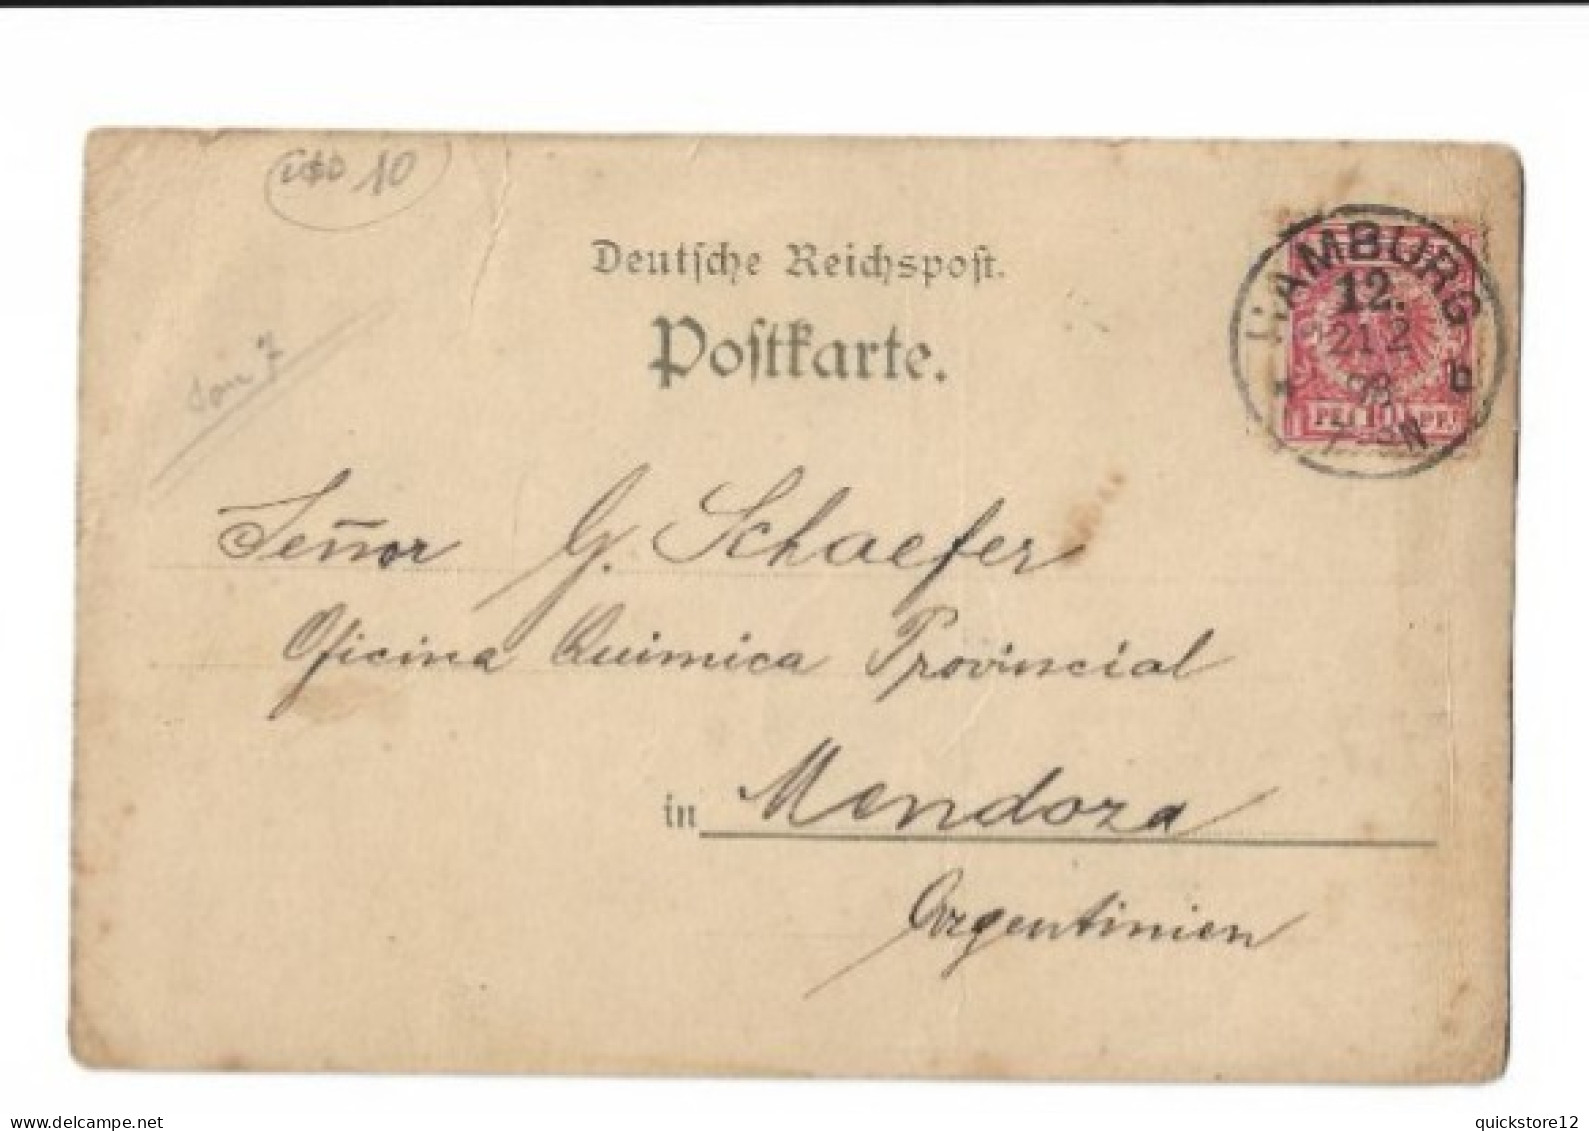 USD 10
Deutsche Reichspost.
Postkarte.
HAMBURG
12.
21 2
98
* b
7-8N
10
PF.
Señor G. Schaefer
Oficina Quimica Provincial
in Mendoza
Argentinien
www.delcampe.net
quickstore12